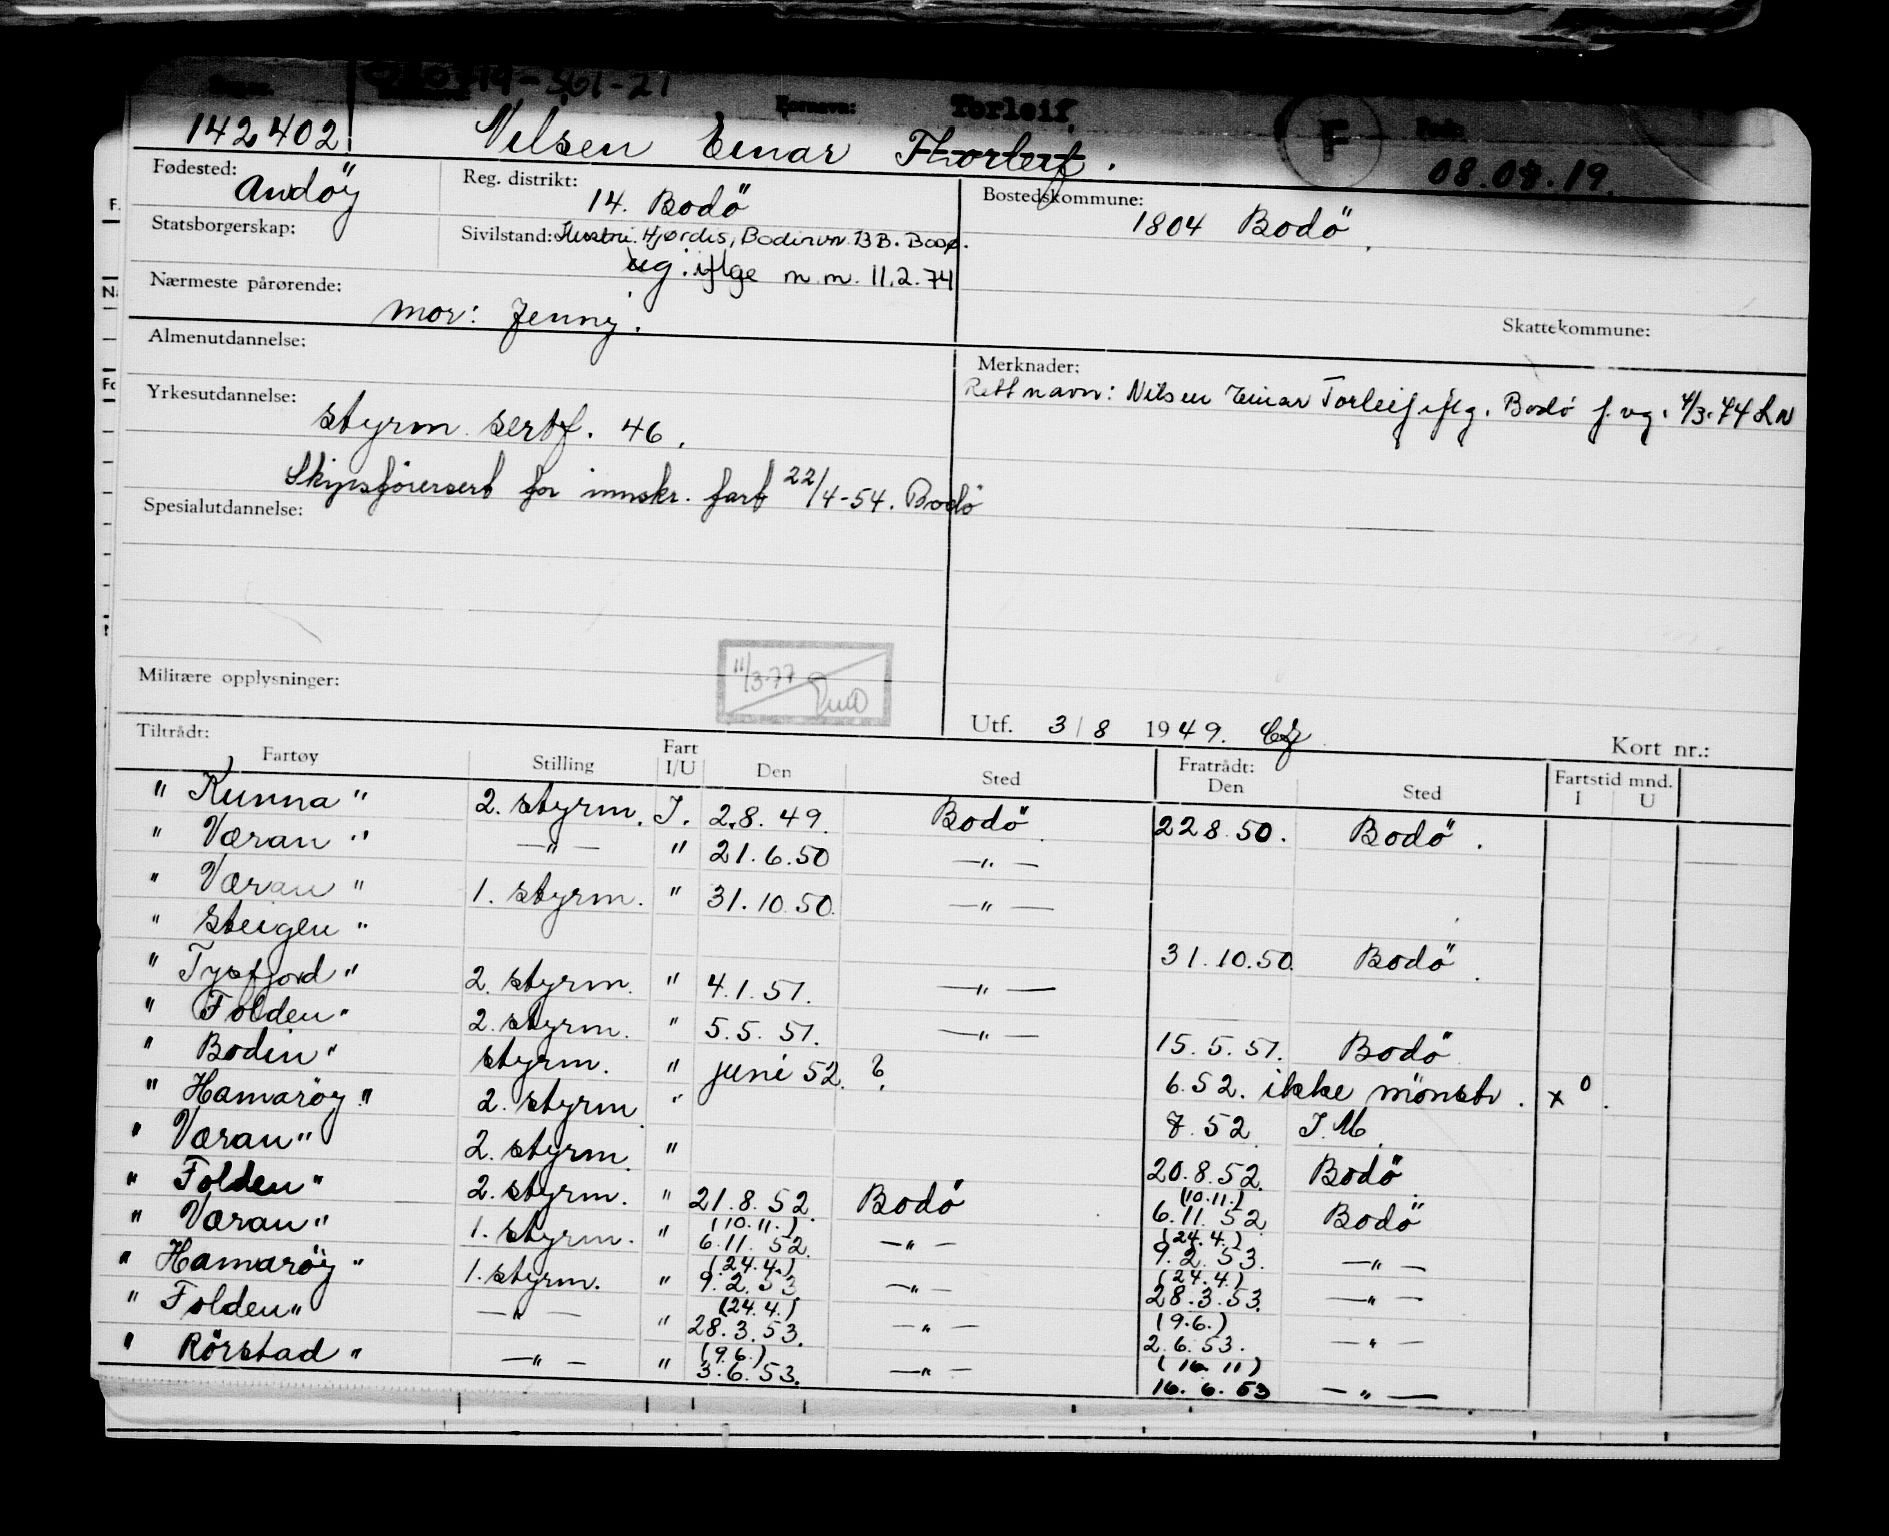 19-361-21
Fornavn: Torleif
142402 Nilsen Einar Thorleif. F 08.08.19.
Fødested: Reg. distrikt: Bostedskommune:
Andöy 14. Bodö 1804 Bodö.
Statsborgerskap: Sivilstand: Hustru Hjørdis, Bodinvn 13 B. Bodø.
ug. iflge m.m. 11.2.74
Nærmeste pårørende:
mor: Jenny.
Skattekommune:
Almenutdannelse: Merknader:
Rett navn: Nilsen Einar Torleif iflg. Bodö f.vg. 4/3-74 LN
Yrkesutdannelse:
styrm. sertf. 46.
Skipsförersert for innskr. fart 22/4-54. Bodö
Spesialutdannelse:
Militære opplysninger: 11/3-77
Utf. 3/8 1949. Kort nr.:
Tiltrådt: Fratrådt: Fartstid mnd.
Fartøy Stilling Fart I/U Den Sted Den Sted I U
"Kunna" 2. styrm. I. 2.8.49. Bodö. 22.8.50. Bodö.
"Væran" —"— " 21.6.50 —"—
"Væran" 1. styrm. " 31.10.50. —"—
"Steigen" 31.10.50. Bodö.
"Tysfjord" 2. styrm. " 4.1.51. —"—
"Folden" 2. styrm. " 5.5.51. —"— 15.5.51. Bodö
"Bodin" styrm. " juni 52. ? 6.52. ikke mönstr. x 0.
"Hamaröy" 2. styrm. " 7.52. I.M.
"Væran" 2. styrm. " 20.8.52. Bodö.
"Folden" 2. styrm. " 21.8.52. Bodö (10.11.) 6.11.52 Bodö
"Væran" 1. styrm. " (10.11.) 6.11.52. —"— (24.4.) 9.2.53. —"—
"Hamaröy" 1. styrm. " (24.4.) 9.2.53 —"— (24.4.) 28.3.53. —"—
"Folden" —"— " (24.4.) 28.3.53. —"— (9.6.) 2.6.53. —"—
"Rörstad" —"— " (9.6.) 3.6.53. —"— (16.11) 16.6.53 —"—